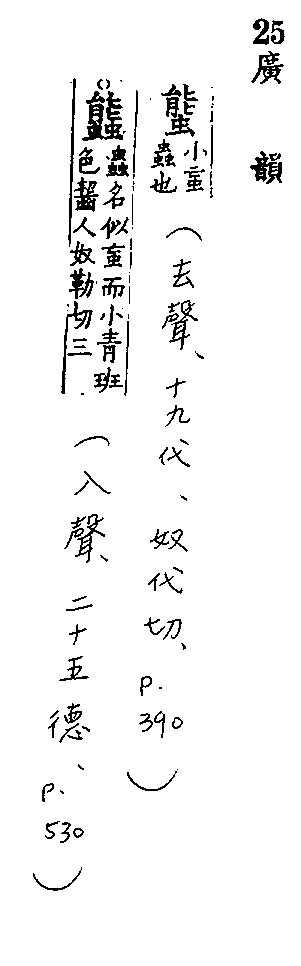 25廣韻
䘅小䖝蟲也(去聲、十九代、奴代切、p.390)
䘅蟲名似䖝而小青班色齧人奴勒切三(入聲、二十五德、p.530)